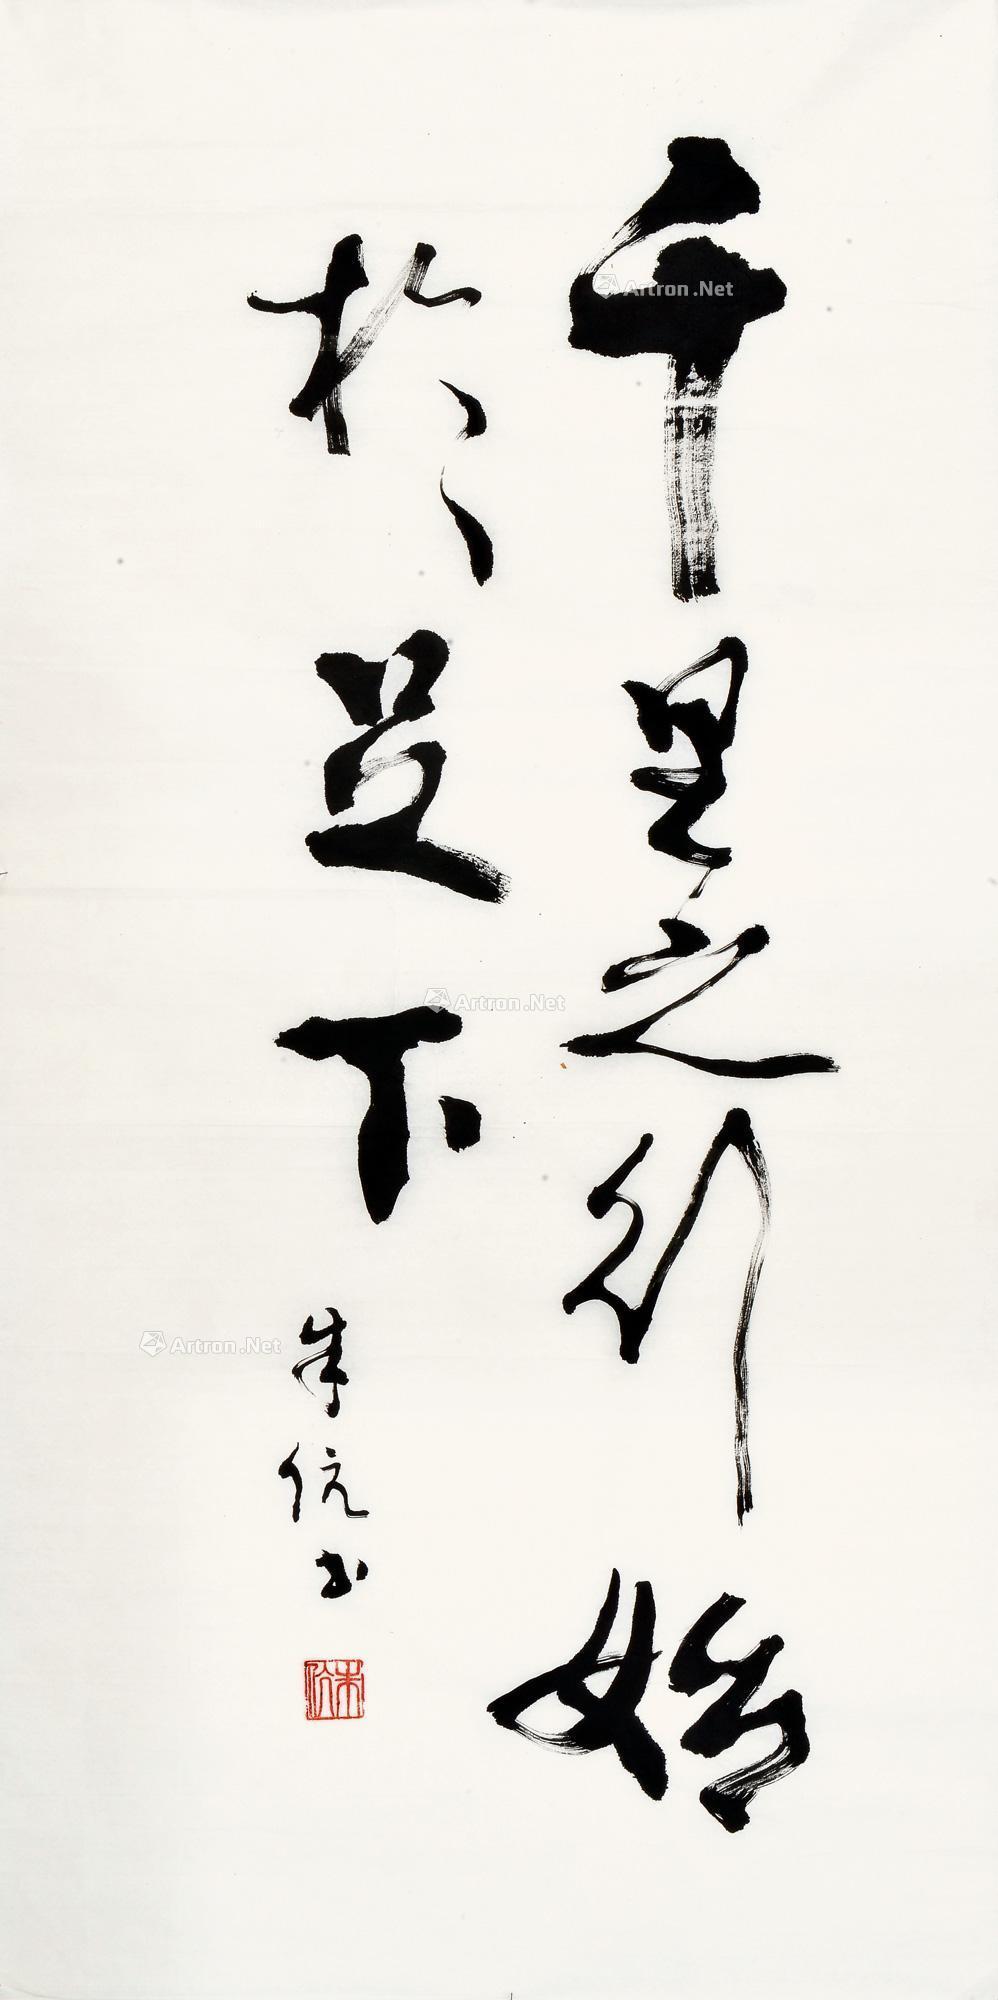 千里之行始
於足下
朱伉书
朱伉
Artron.Net
Artron.Net
Artron.Net